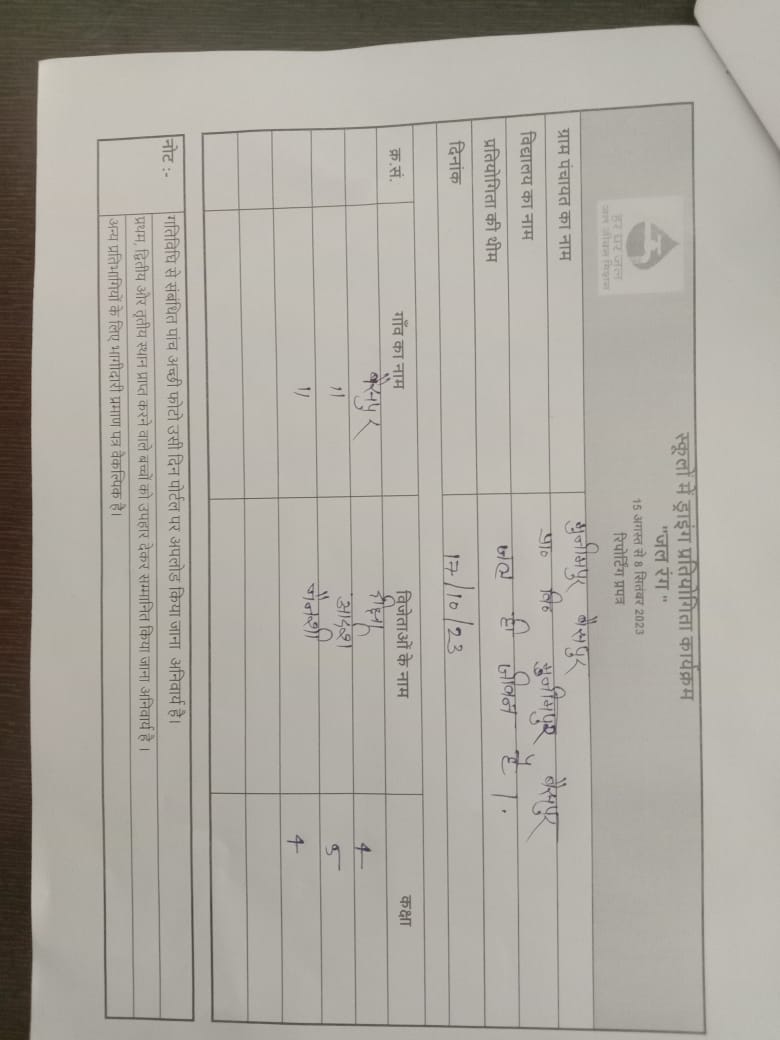 हर घर जल
जल जीवन मिशन
स्कूलों में ड्राइंग प्रतियोगिता कार्यक्रम
"जल रंग"
15 अगस्त से 8 सितंबर 2023
रिपोर्टिंग प्रपत्र
ग्राम पंचायत का नाम बैसपुर
विद्यालय का नाम प्रा० वि० बैसपुर
प्रतियोगिता की थीम जल ही जीवन है।
दिनांक 17/10/23
क्र.सं. गाँव का नाम विजेताओं के नाम कक्षा
बैसपुर 4
" 5
" 4
नोट :- गतिविधि से संबंधित पांच अच्छी फोटो उसी दिन पोर्टल पर अपलोड किया जाना अनिवार्य है।
प्रथम, द्वितीय और तृतीय स्थान प्राप्त करने वाले बच्चों को उपहार देकर सम्मानित किया जाना अनिवार्य है।
अन्य प्रतिभागियों के लिए भागीदारी प्रमाण पत्र वैकल्पिक है।